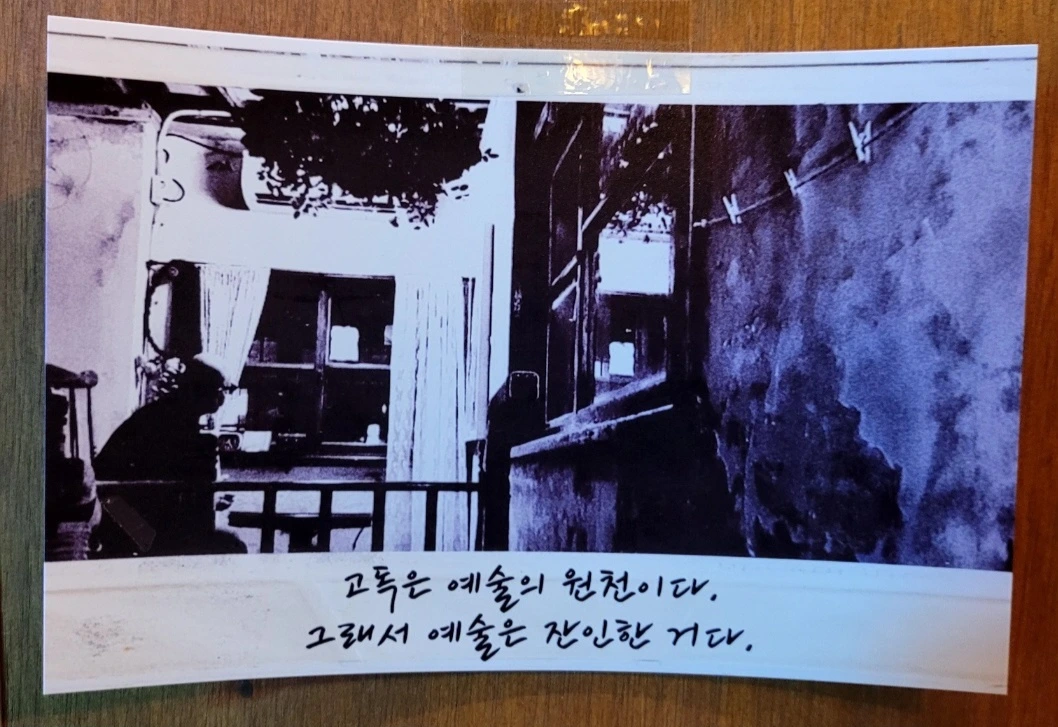 고독은 예술의 원천이다.
그래서 예술은 잔인한 거다.